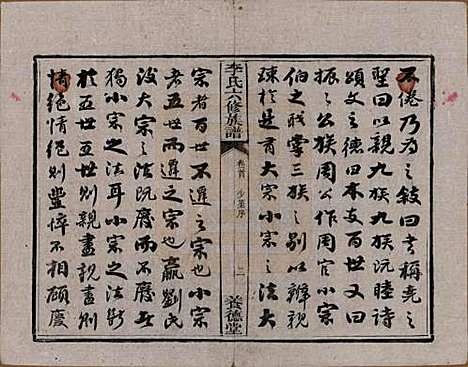 不倦乃为之敍曰書稱堯之
聖曰以親九族九族既睦詩
頌文王之德曰本支百世又曰
振振公族周公作周官小宗
伯之職掌三族之别以辨親
疎於是有大宗小宗之法大
李氏六修族譜
卷首
序
養德堂
宗者百世不遷之宗也小宗
者五世而遷之宗也嬴劉氏
没大宗之法既廢而不廢者
獨小宗之法耳小宗之法斷
於五世五世則親盡親盡則
情絕情絕則豐悴不相顧慶